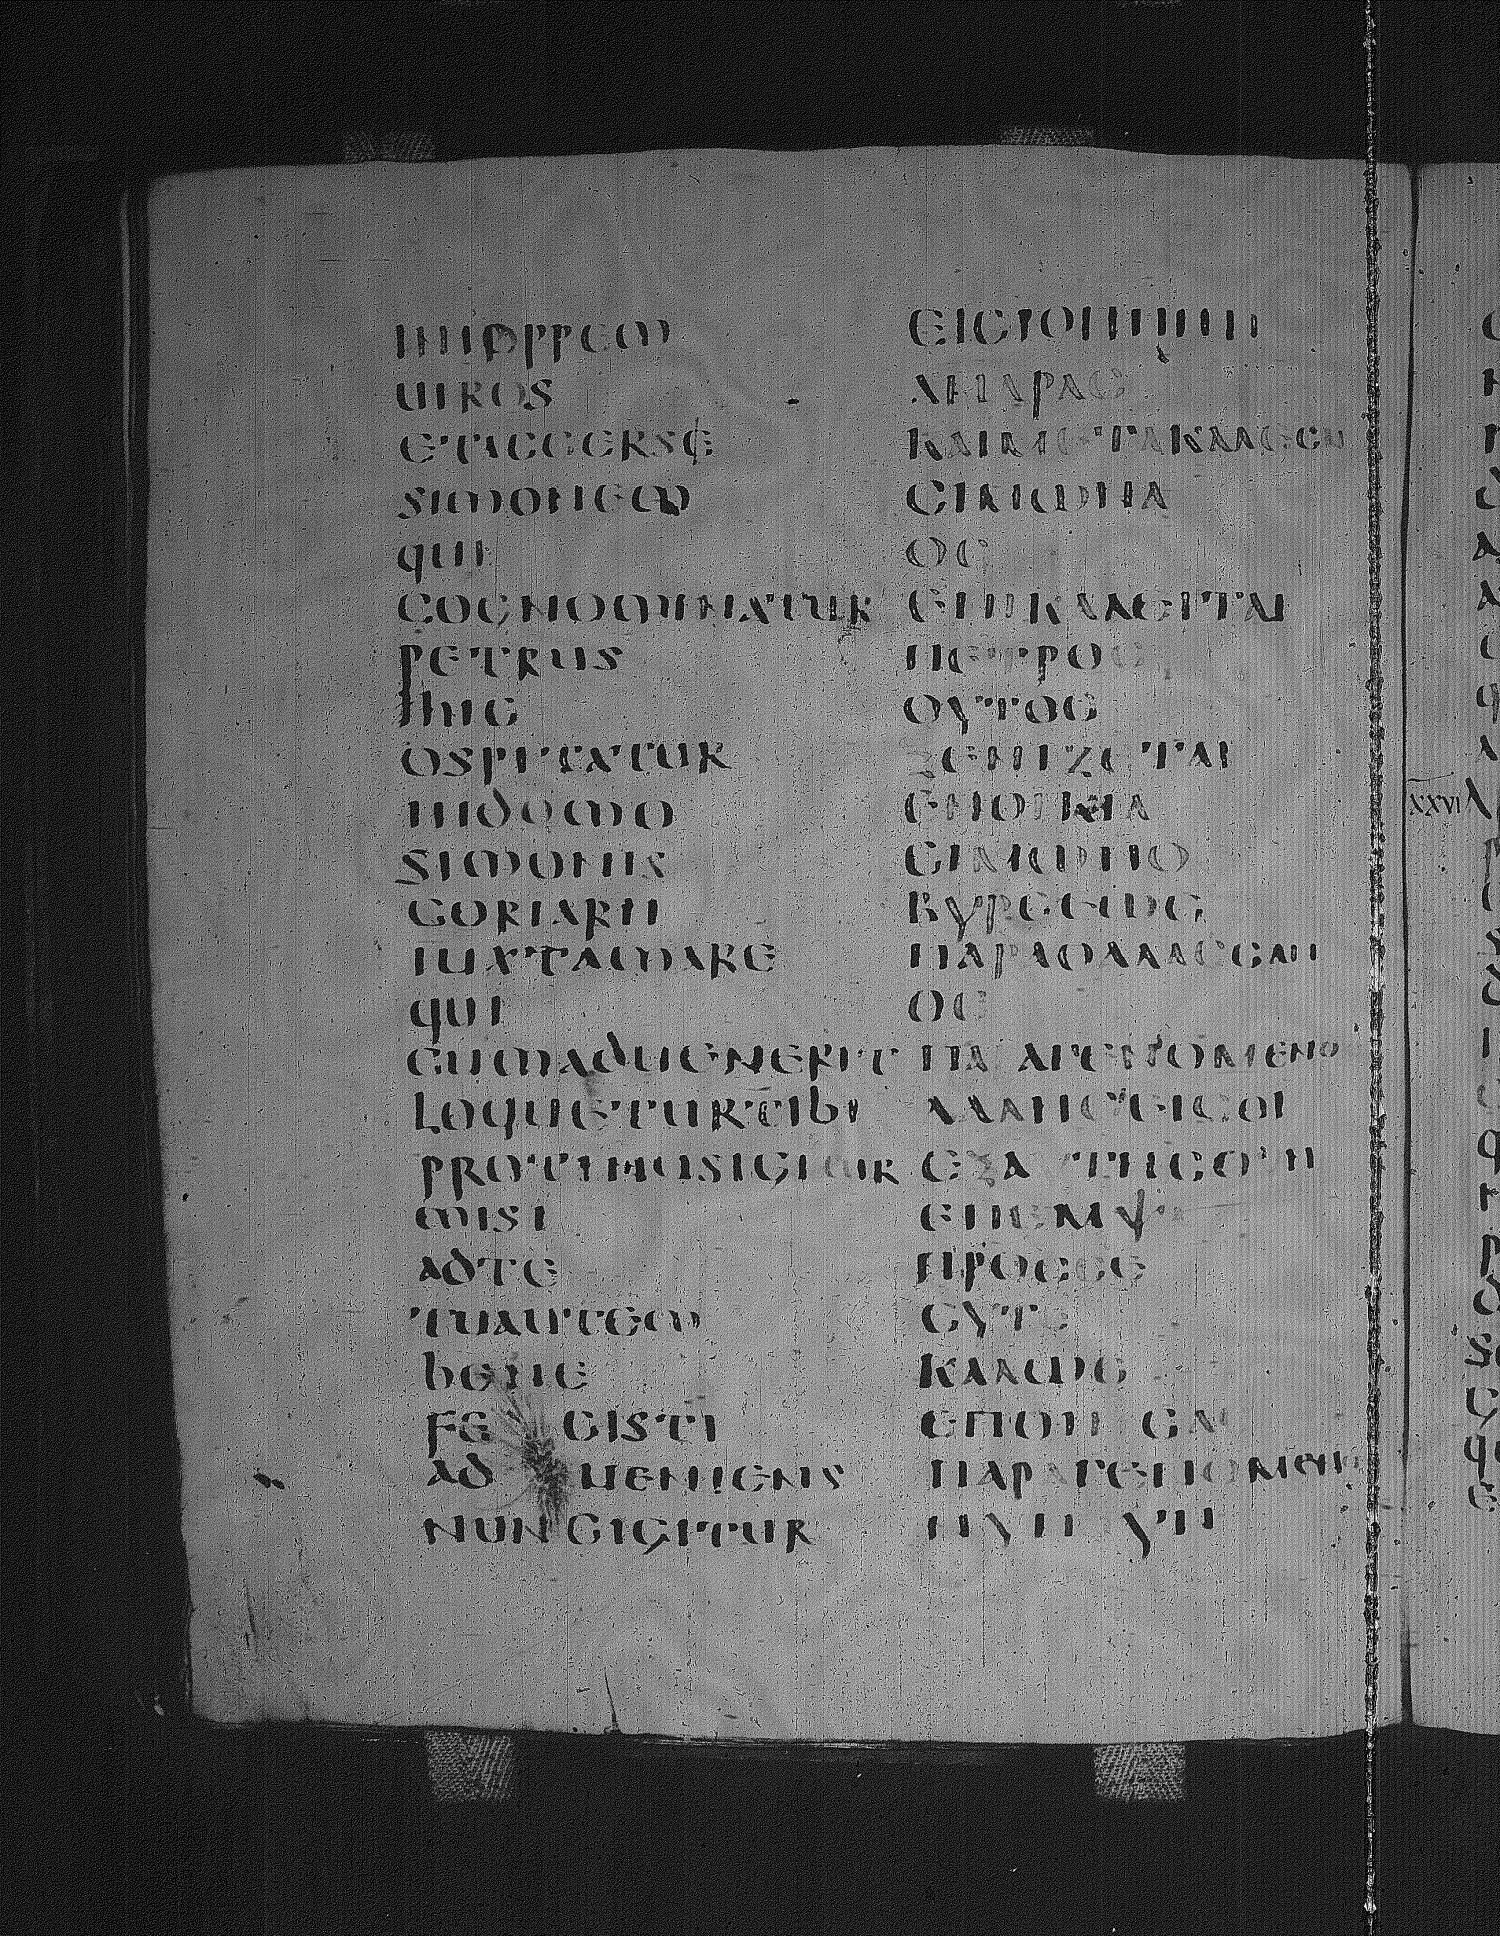 inioppem
uiros
etaccerse
simonem
qui
cognominatur
petrus
hic
ospitatur
indomo
simonis
coriarii
iuxtamare
qui
cumaduenerit
loqueturtibi
protinusigitur
misi
adte
tuautem
bene
fecisti
adueniens
nuncigitur
ΕΙϹΙΟΠΠΗΝ
ΑΝΔΡΑϹ
ΚΑΙΜΕΤΑΚΑΛΕϹΑΙ
ϹΙΜΩΝΑ
ΟϹ
ΕΠΙΚΑΛΕΙΤΑΙ
ΠΕΤΡΟϹ
ΟΥΤΟϹ
ΞΕΝΙΖΕΤΑΙ
ΕΝΟΙΚΙΑ
ϹΙΜΩΝΟϹ
ΒΥΡϹΕΩϹ
ΠΑΡΑΘΑΛΑϹϹΑΝ
ΟϹ
ΠΑΡΑΓΕΝΟΜΕΝΟϹ
ΛΑΛΗϹΕΙϹΟΙ
ΕΞΑΥΤΗϹΟΥΝ
ΕΠΕΜΨΑ
ΠΡΟϹϹΕ
ϹΥΤΕ
ΚΑΛΩϹ
ΕΠΟΙΗϹΑϹ
ΠΑΡΑΓΕΝΟΜΕΝΟϹ
ΝΥΝΟΥΝ
XXVI